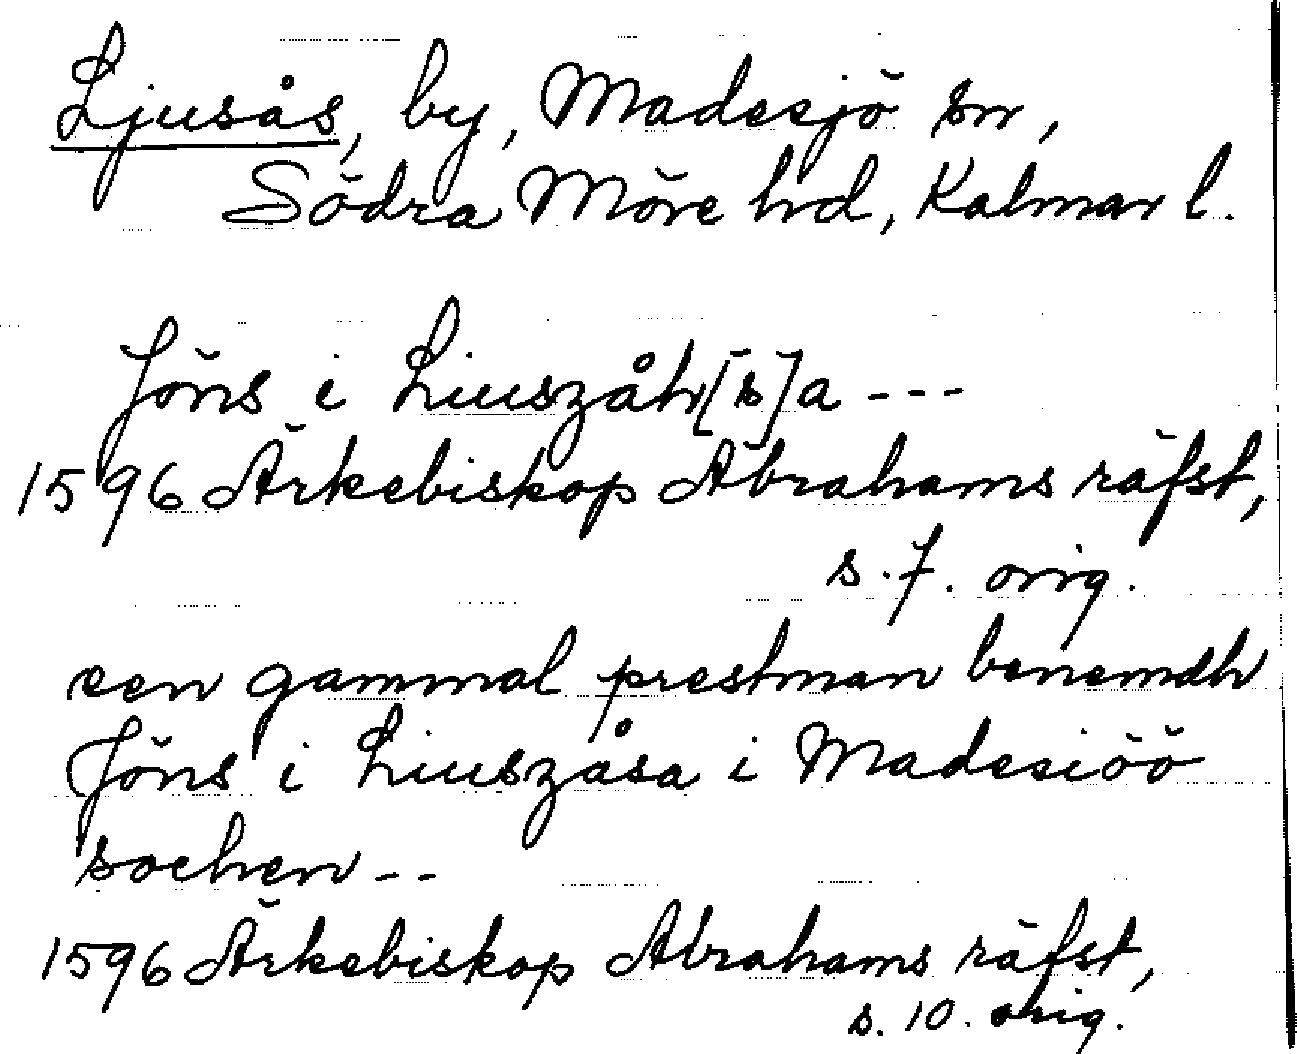 Ljusås, by, Madesjö sn,
Södra Möre hd, Kalmar l.
Jöns i Liuszåh[s]a ---
1596 Ärkebiskop Abrahams räfst,
s. 7. orig.
een gammal prestman benemdh
Jöns i Liuszåsa i Madesiöö
sochen --
1596 Ärkebiskop Abrahams räfst,
s. 10. orig.